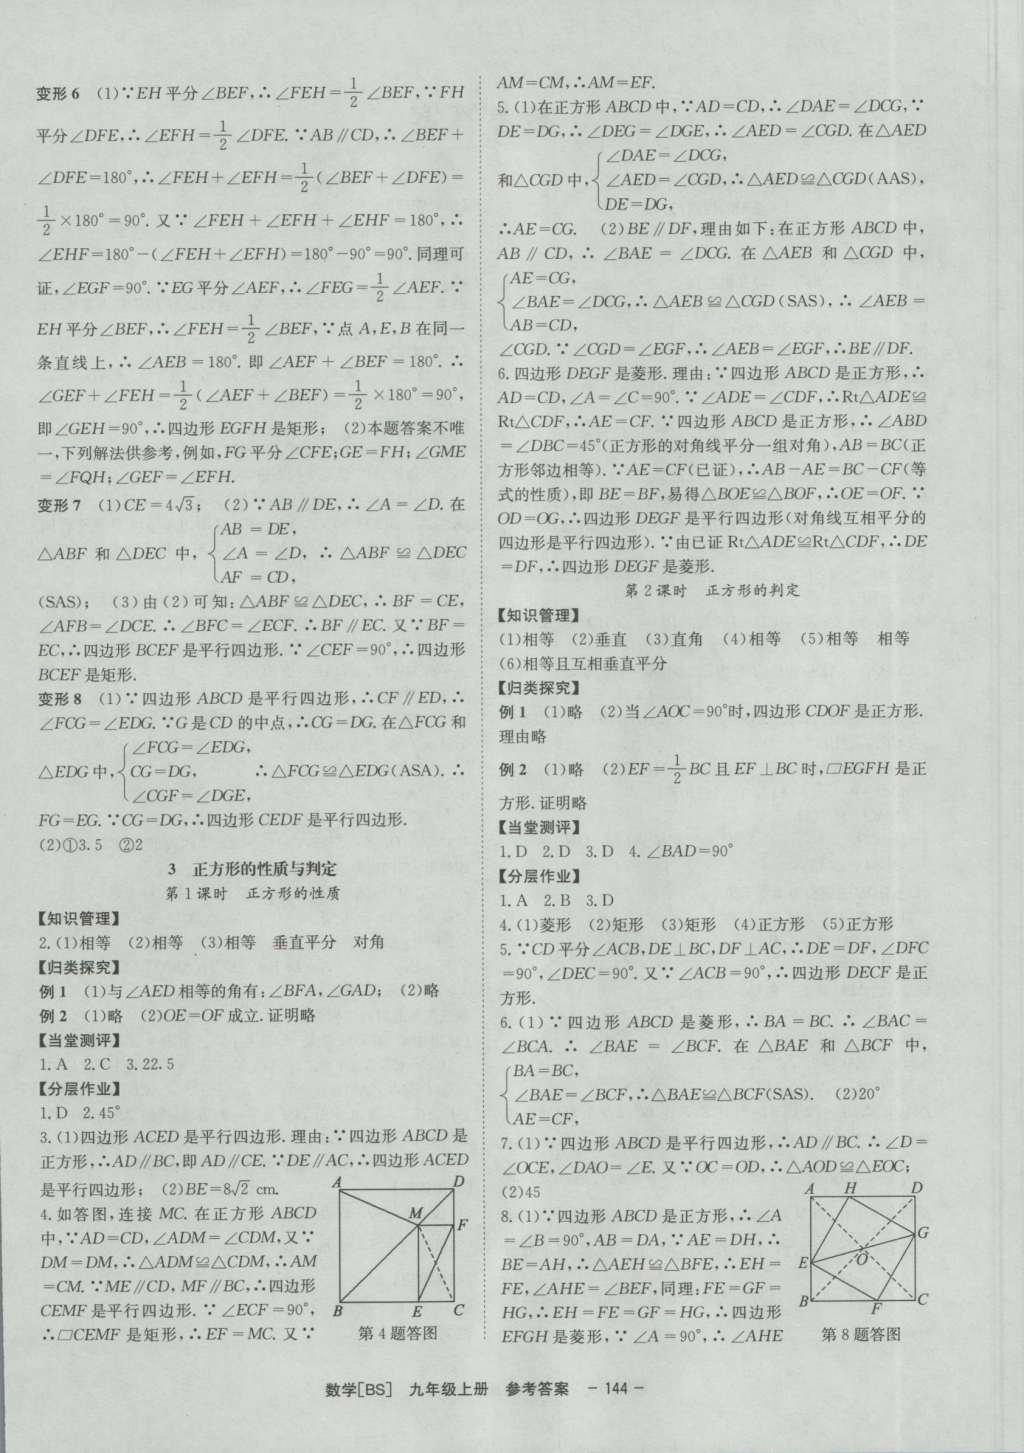 变形6 (1)∵EH平分∠BEF,∴∠FEH=1/2∠BEF,∵FH
平分∠DFE,∴∠EFH=1/2∠DFE.∵AB∥CD,∴∠BEF+
∠DFE=180°,∴∠FEH+∠EFH=1/2(∠BEF+∠DFE)=
1/2×180°=90°.又∵∠FEH+∠EFH+∠EHF=180°,∴
∠EHF=180°-(∠FEH+∠EFH)=180°-90°=90°.同理可
证,∠EGF=90°.∵EG平分∠AEF,∴∠FEG=1/2∠AEF.∵
EH平分∠BEF,∴∠FEH=1/2∠BEF,∵点A,E,B在同一
条直线上,∴∠AEB=180°.即∠AEF+∠BEF=180°.∴
∠GEF+∠FEH=1/2(∠AEF+∠BEF)=1/2×180°=90°,
即∠GEH=90°,∴四边形EGFH是矩形; (2)本题答案不唯
一,下列解法供参考,例如,FG平分∠CFE;GE=FH;∠GME
=∠FQH;∠GEF=∠EFH.
变形7 (1)CE=4√3; (2)∵AB∥DE,∴∠A=∠D.在
△ABF和△DEC中,{AB=DE,
∠A=∠D,∴△ABF≌△DEC
AF=CD,
(SAS); (3)由(2)可知:△ABF≌△DEC,∴BF=CE,
∠AFB=∠DCE.∴∠BFC=∠ECF.∴BF∥EC.又∵BF=
EC,∴四边形BCEF是平行四边形.∵∠CEF=90°,∴四边形
BCEF是矩形.
变形8 (1)∵四边形ABCD是平行四边形,∴CF∥ED,∴
∠FCG=∠EDG.∵G是CD的中点,∴CG=DG.在△FCG和
△EDG中,{∠FCG=∠EDG,
CG=DG, ∴△FCG≌△EDG(ASA).∴
∠CGF=∠DGE,
FG=EG.∵CG=DG,∴四边形CEDF是平行四边形.
(2)①3.5 ②2
3 正方形的性质与判定
第1课时 正方形的性质
【知识管理】
2.(1)相等 (2)相等 (3)相等 垂直平分 对角
【归类探究】
例1 (1)与∠AED相等的角有:∠BFA,∠GAD; (2)略
例2 (1)略 (2)OE=OF成立.证明略
【当堂测评】
1.A 2.C 3.22.5
【分层作业】
1.D 2.45°
3.(1)四边形ACED是平行四边形.理由:∵四边形ABCD是
正方形,∴AD∥BC,即AD∥CE.∵DE∥AC,∴四边形ACED
是平行四边形; (2)BE=8√2 cm.
4.如答图,连接MC.在正方形ABCD
中,∵AD=CD,∠ADM=∠CDM,又∵
DM=DM,∴△ADM≌△CDM,∴AM
=CM.∵ME∥CD,MF∥BC,∴四边形
CEMF是平行四边形.∵∠ECF=90°,
∴□CEMF是矩形,∴EF=MC.又∵
A D
M F
B E C
第4题答图
AM=CM,∴AM=EF.
5.(1)在正方形ABCD中,∵AD=CD,∴∠DAE=∠DCG,∵
DE=DG,∴∠DEG=∠DGE,∴∠AED=∠CGD.在△AED
和△CGD中,{∠DAE=∠DCG,
∠AED=∠CGD,∴△AED≌△CGD(AAS),
DE=DG,
∴AE=CG. (2)BE∥DF,理由如下:在正方形ABCD中,
AB∥CD,∴∠BAE=∠DCG.在△AEB和△CGD中,
{AE=CG,
∠BAE=∠DCG,∴△AEB≌△CGD(SAS),∴∠AEB=
AB=CD,
∠CGD.∵∠CGD=∠EGF,∴∠AEB=∠EGF,∴BE∥DF.
6.四边形DEGF是菱形.理由:∵四边形ABCD是正方形,∴
AD=CD,∠A=∠C=90°.∵∠ADE=∠CDF,∴Rt△ADE≌
Rt△CDF,∴AE=CF.∵四边形ABCD是正方形,∴∠ABD
=∠DBC=45°(正方形的对角线平分一组对角),AB=BC(正
方形邻边相等).∵AE=CF(已证),∴AB-AE=BC-CF(等
式的性质),即BE=BF,易得△BOE≌△BOF,∴OE=OF.∵
OD=OG,∴四边形DEGF是平行四边形(对角线互相平分的
四边形是平行四边形).∵由已证Rt△ADE≌Rt△CDF,∴DE
=DF,∴四边形DEGF是菱形.
第2课时 正方形的判定
【知识管理】
(1)相等 (2)垂直 (3)直角 (4)相等 (5)相等 相等
(6)相等且互相垂直平分
【归类探究】
例1 (1)略 (2)当∠AOC=90°时,四边形CDOF是正方形.
理由略
例2 (1)略 (2)EF=1/2BC且EF⊥BC时,□EGFH是正
方形.证明略
【当堂测评】
1.D 2.D 3.D 4.∠BAD=90°
【分层作业】
1.A 2.B 3.D
4.(1)菱形 (2)矩形 (3)矩形 (4)正方形 (5)正方形
5.∵CD平分∠ACB,DE⊥BC,DF⊥AC,∴DE=DF,∠DFC
=90°,∠DEC=90°.又∵∠ACB=90°,∴四边形DECF是正
方形.
6.(1)∵四边形ABCD是菱形,∴BA=BC.∴∠BAC=
∠BCA.∴∠BAE=∠BCF.在△BAE和△BCF中,
{BA=BC,
∠BAE=∠BCF,∴△BAE≌△BCF(SAS). (2)20°
AE=CF,
7.(1)∵四边形ABCD是平行四边形,∴AD∥BC.∴∠D=
∠OCE,∠DAO=∠E.又∵OC=OD,∴△AOD≌△EOC;
(2)45
8.(1)∵四边形ABCD是正方形,∴∠A
=∠B=90°,AB=DA,∵AE=DH,∴
BE=AH,∴△AEH≌△BFE,∴EH=
FE,∠AHE=∠BEF,同理:FE=GF=
HG,∴EH=FE=GF=HG,∴四边形
EFGH是菱形,∵∠A=90°,∴∠AHE
A H D
G
E O
B F C
第8题答图
数学[BS] 九年级上册 参考答案 －144－